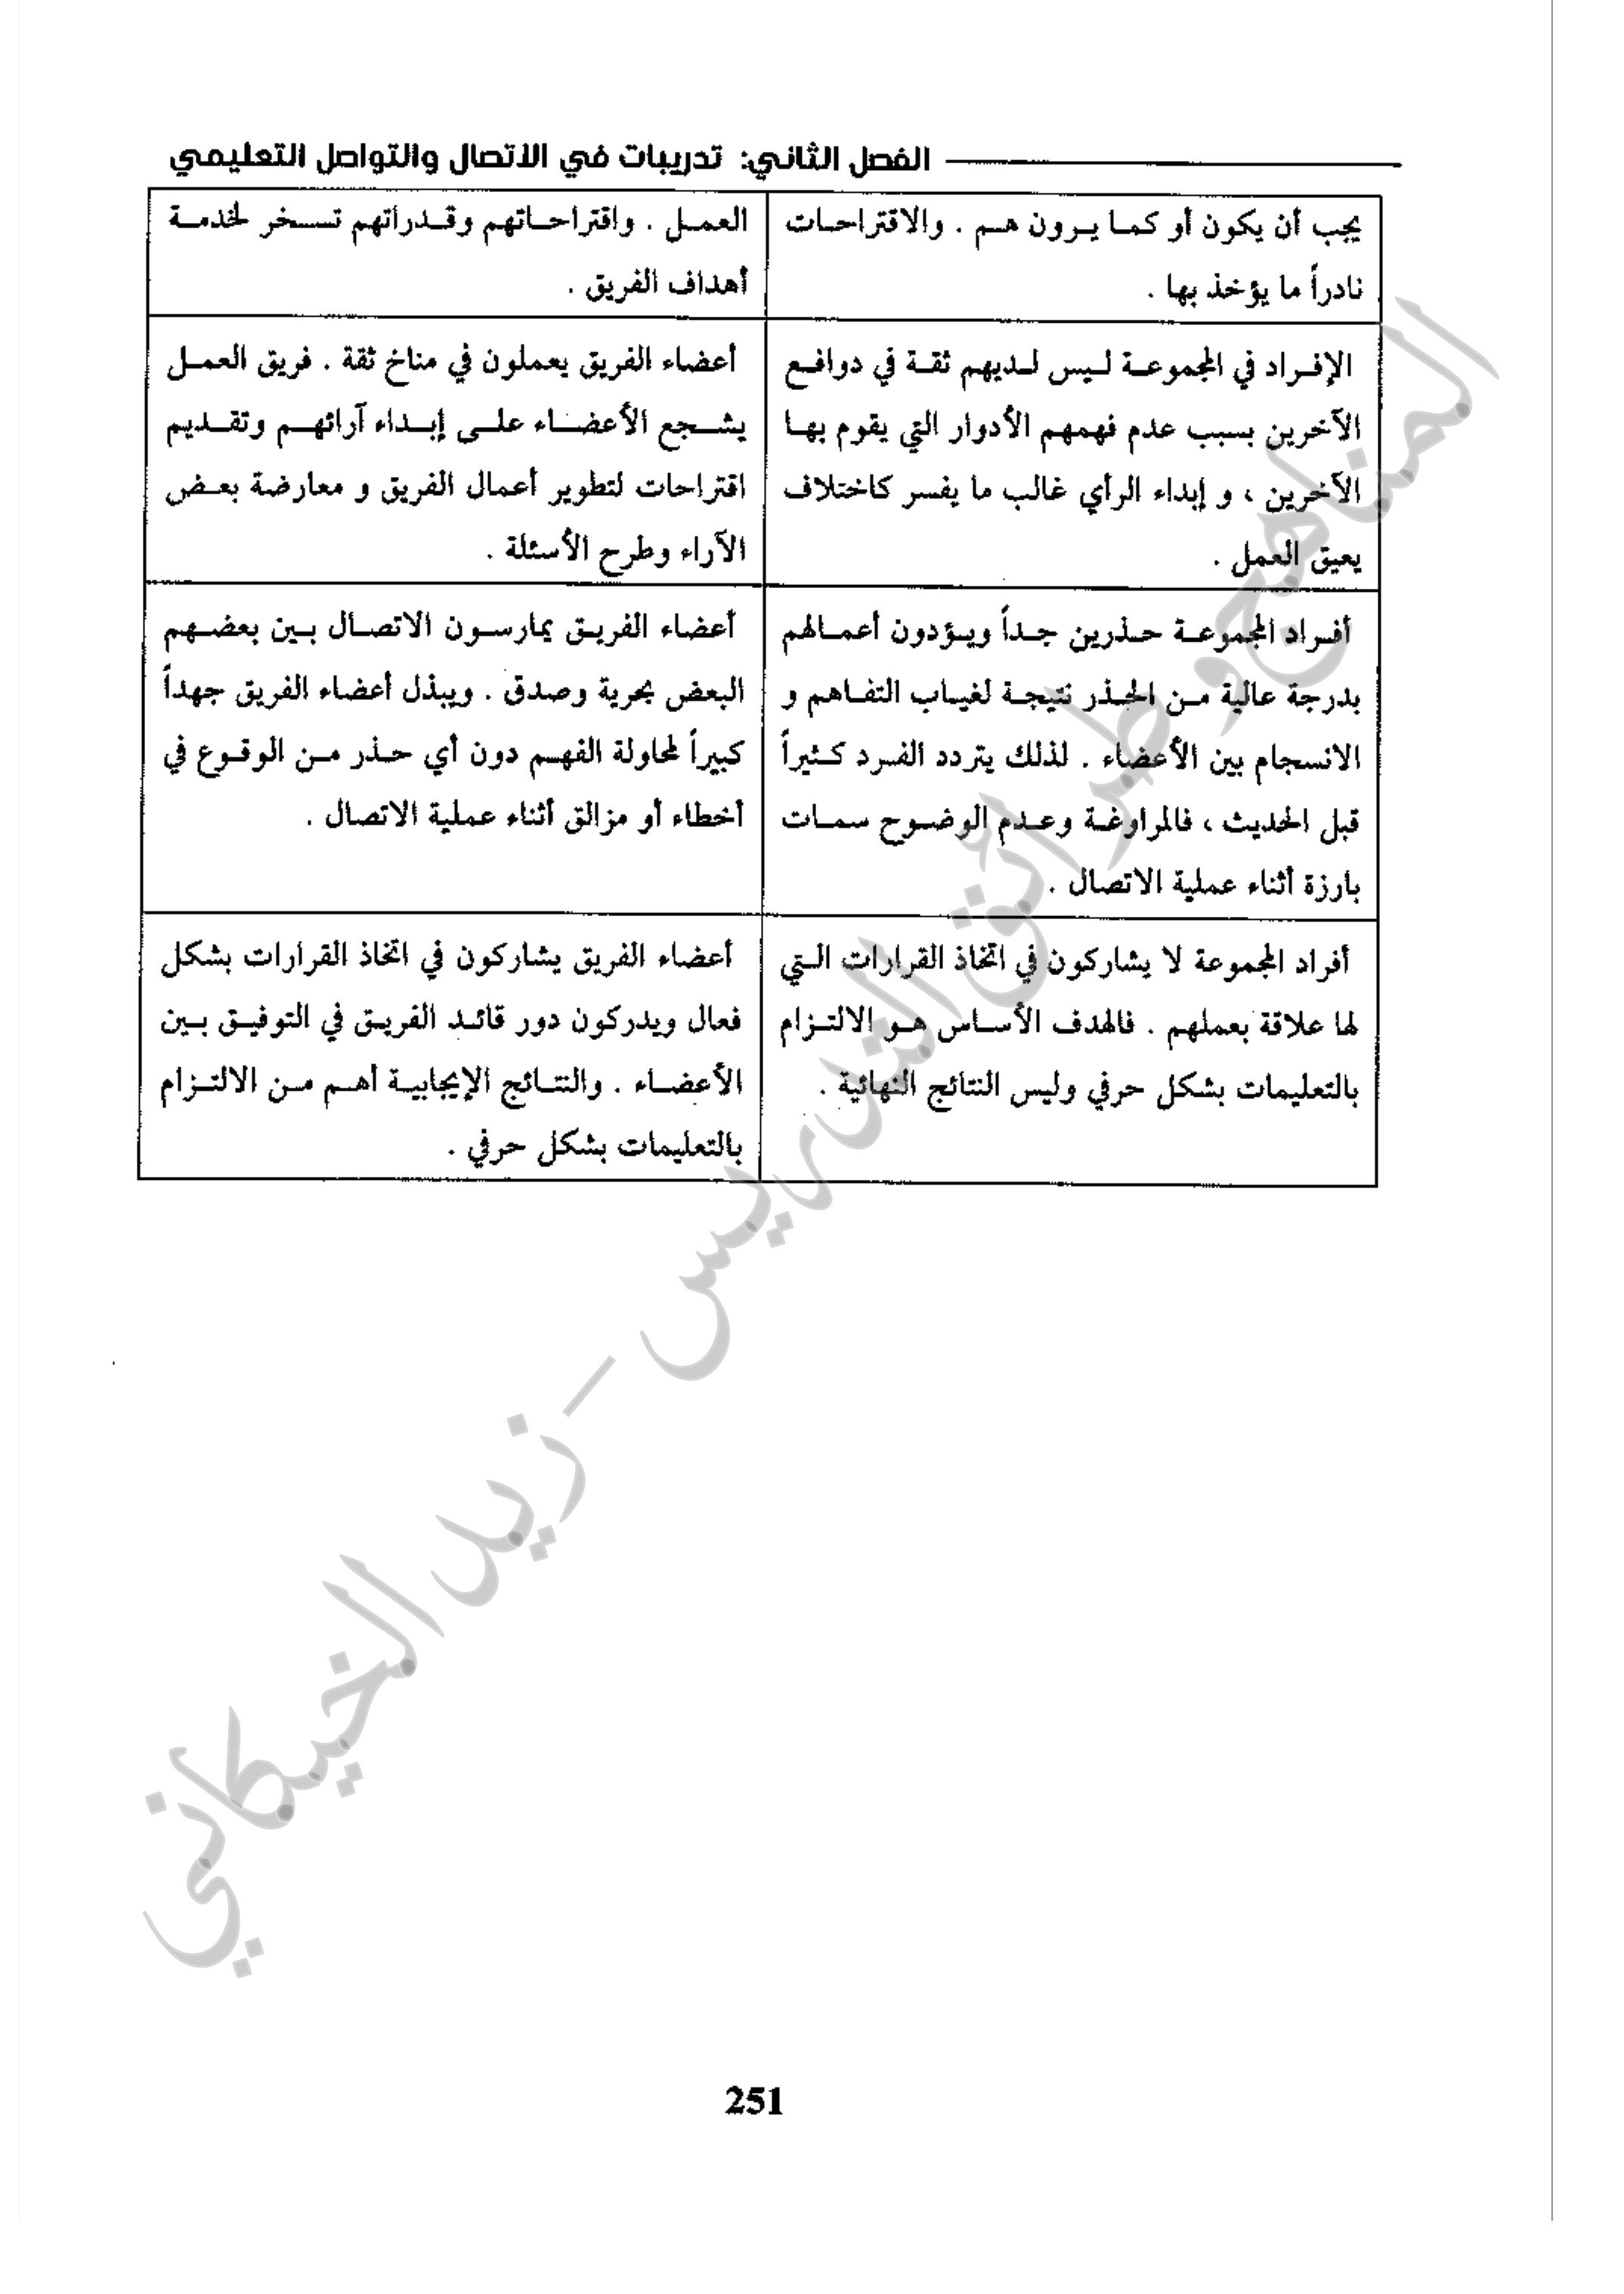 الفصل الثاني: تدريبات في الاتصال والتواصل التعليمي
يجب أن يكون أو كما يرون هم . والاقتراحات
نادراً ما يؤخذ بها .
العمل . واقتراحاتهم وقدراتهم تسخر لخدمة
أهداف الفريق .
الإفراد في المجموعة ليس لديهم ثقة في دوافع
الآخرين بسبب عدم فهمهم الأدوار التي يقوم بها
الآخرين ، و إبداء الرأي غالب ما يفسر كاختلاف
يعيق العمل .
أعضاء الفريق يعملون في مناخ ثقة . فريق العمل
يشجع الأعضاء على إبداء آرائهم وتقديم
اقتراحات لتطوير أعمال الفريق و معارضة بعض
الآراء وطرح الأسئلة .
أفراد المجموعة حذرين جداً ويؤدون أعمالهم
بدرجة عالية من الحذر نتيجة لغياب التفاهم و
الانسجام بين الأعضاء . لذلك يتردد الفرد كثيراً
قبل الحديث ، فالمراوغة وعدم الوضوح سمات
بارزة أثناء عملية الاتصال .
أعضاء الفريق يمارسون الاتصال بين بعضهم
البعض بحرية وصدق . ويبذل أعضاء الفريق جهداً
كبيراً لمحاولة الفهم دون أي حذر من الوقوع في
أخطاء أو مزالق أثناء عملية الاتصال .
أفراد المجموعة لا يشاركون في اتخاذ القرارات التي
لها علاقة بعملهم . فالهدف الأساس هو الالتزام
بالتعليمات بشكل حرفي وليس النتائج النهائية .
أعضاء الفريق يشاركون في اتخاذ القرارات بشكل
فعال ويدركون دور قائد الفريق في التوفيق بين
الأعضاء . والنتائج الإيجابية أهم من الالتزام
بالتعليمات بشكل حرفي .
المناهج وطرائق التدريس - زيد الخيكاني
251